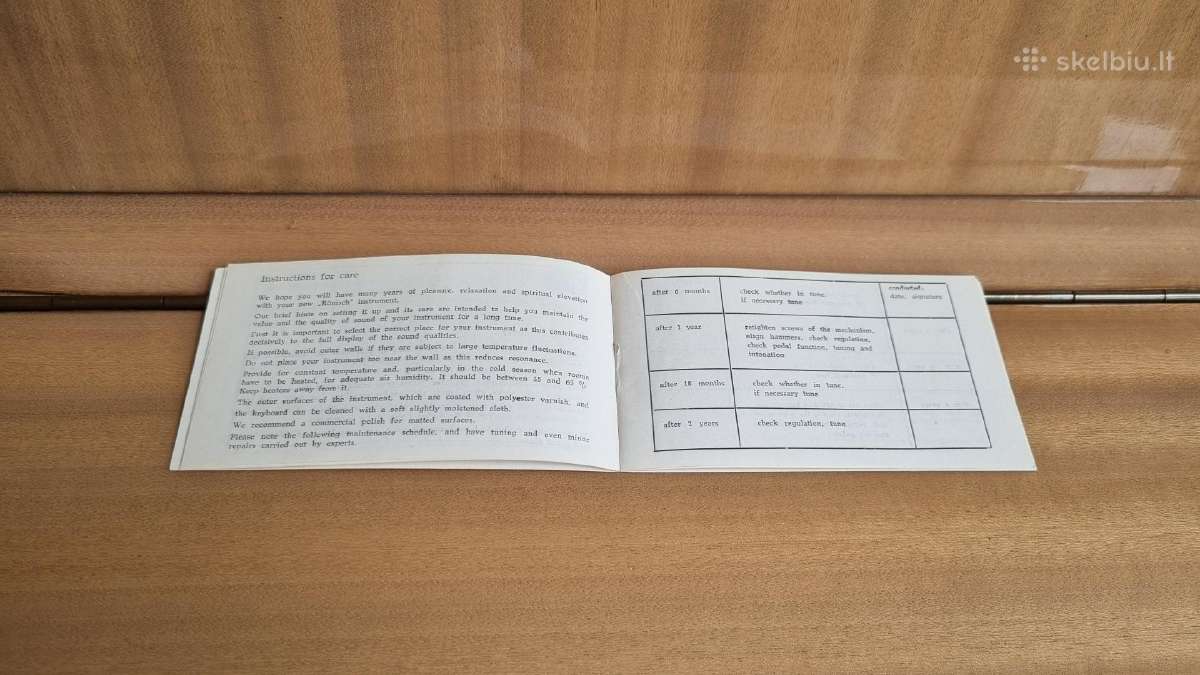 skelbiu.lt
Instructions for care
We hope you will have many years of pleasure, relaxation and spiritual elevation
with your new „Rönisch" instrument.
Our brief hints on setting it up and its care are intended to help you maintain the
value and the quality of sound of your instrument for a long time.
First it is important to select the correct place for your instrument as this contributes
decisively to the full display of the sound qualities.
If possible, avoid outer walls if they are subject to large temperature fluctuations.
Do not place your instrument too near the wall as this reduces resonance.
Provide for constant temperature and, particularly in the cold season when rooms
have to be heated, for adequate air humidity. It should be between 55 and 65 %.
Keep heaters away from it.
The outer surfaces of the instrument, which are coated with polyester varnish, and
the keyboard can be cleaned with a soft slightly moistened cloth.
We recommend a commercial polish for matted surfaces.
Please note the following maintenance schedule, and have tuning and even minor
repairs carried out by experts.
after 6 months
check whether in tune,
if necessary tune
date, signature
after 1 year
retighten screws of the mechanism,
align hammers, check regulation,
check pedal function, tuning and
intonation
after 18 months
check whether in tune,
if necessary tune
after 2 years
check regulation, tune